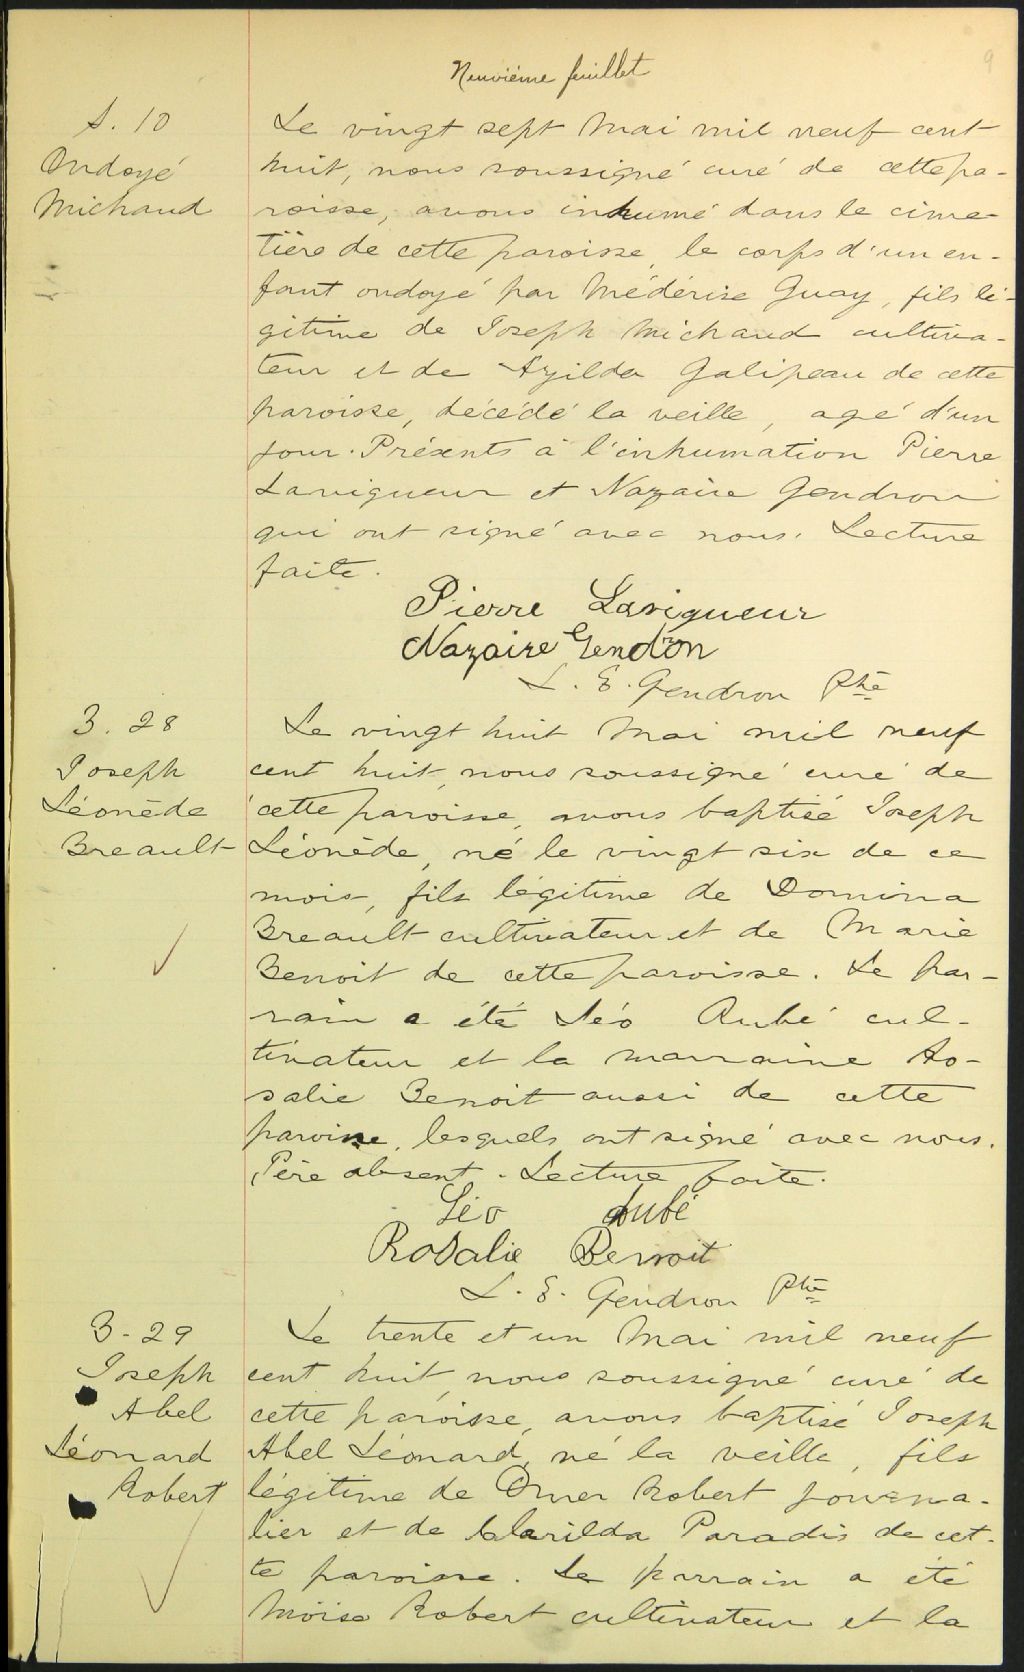 Neuvième feuillet
9
S. 10
Ondoyé
Michaud
Le vingt sept Mai mil neuf cent
huit, nous soussigné curé de cette pa-
roisse, avons inhumé dans le cime-
tière de cette paroisse, le corps d'un en-
fant ondoyé par Médérise Guay, fils lé-
gitime de Joseph Michaud cultiva-
teur et de Azilda Galipeau de cette
paroisse, décédé la veille, agé d'un
jour. Présents à l'inhumation Pierre
Lavigueur et Nazaire Gendron
qui ont signé avec nous. Lecture
faite.
Pierre Lavigueur
Nazaire Gendron
L. E. Gendron Ptre
B. 28
Joseph
Léonède
Breault
Le vingt huit Mai mil neuf
cent huit, nous soussigné curé de
cette paroisse, avons baptisé Joseph
Léonède, né le vingt six de ce
mois, fils légitime de Domina
Breault cultivateur et de Marie
Benoit de cette paroisse. Le par-
rain a été Léo Aubé cul-
tivateur et la marraine Ro-
salie Benoit aussi de cette
paroisse, lesquels ont signé avec nous.
Père absent. Lecture faite.
Léo Aubé
Rosalie Benoit
L. E. Gendron Ptre
B. 29
Joseph
Abel
Léonard
Robert
Le trente et un Mai mil neuf
cent huit, nous soussigné curé de
cette paroisse, avons baptisé Joseph
Abel Léonard, né la veille, fils
légitime de Omer Robert journa-
lier et de Clarilda Paradis de cet-
te paroisse. Le parrain a été
Moïse Robert cultivateur et la